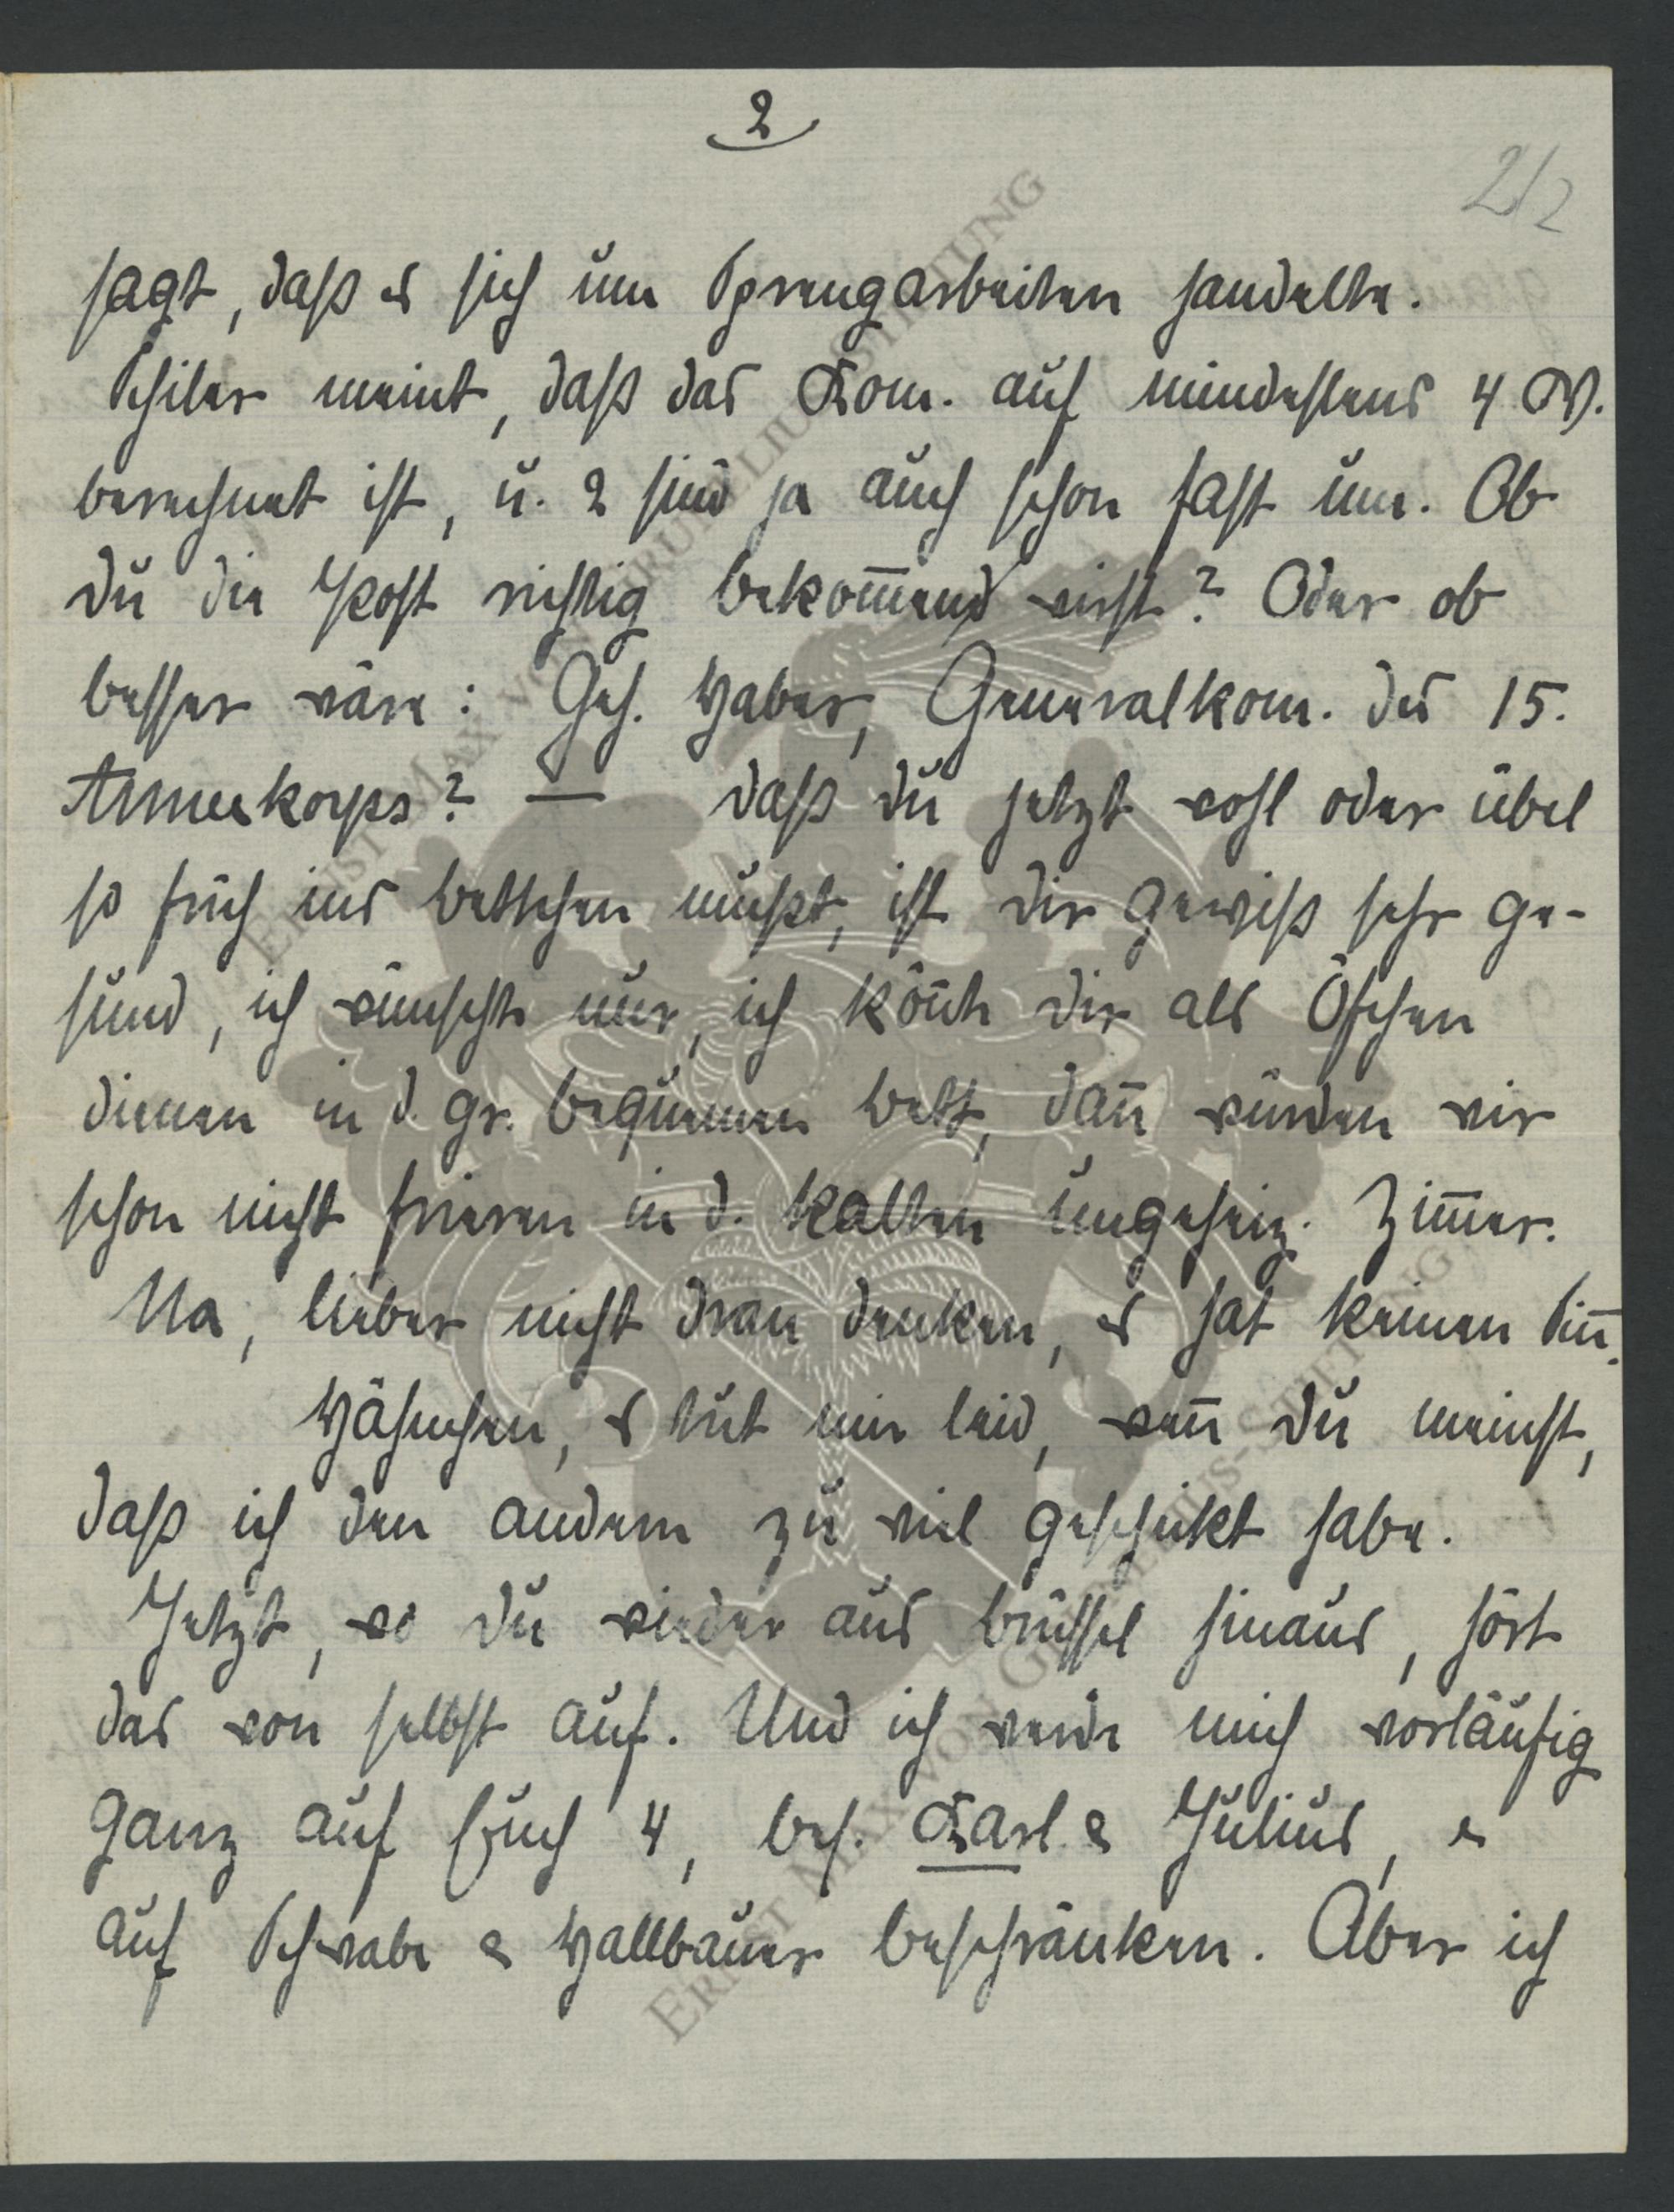 2
2/2
sagt, daß es sich um Sprengarbeiten handelte.
Schiler meint, daß das Kom. auf mindestens 4 W.
berechnet ist, u. 2 sind ja auch schon fast um. Ob
du die Post richtig bekommend wirst? Oder ob
besser wäre: Geh. Haber, Generalkom. des 15.
Armeekorps? — daß du jetzt wohl oder übel
so früh ins Bettchen mußt, ist dir gewiß sehr ge-
sund, ich wünscht nur, ich könnte dir als Öfchen
dienen in d. gr. bequemen Bett, dann würden wir
schon nicht frieren in d. kalten ungeheiz. Zimmer.
Na, lieber nicht dran denken, es hat keinen Sinn.
Hähnchen, es tut mir leid, wenn du meinst,
daß ich den andern zu viel geschickt habe.
Jetzt, wo du wieder aus Brüssel hinaus, hört
das von selbst auf. Und ich werde mich vorläufig
ganz auf Euch 4, bes. Karl & Julius, &
auf Schwabe & Hallbauer beschränken. Aber ich
ERNST MAX VON GRUNELIUS-STIFTUNG
ERNST MAX VON GRUNELIUS-STIFTUNG